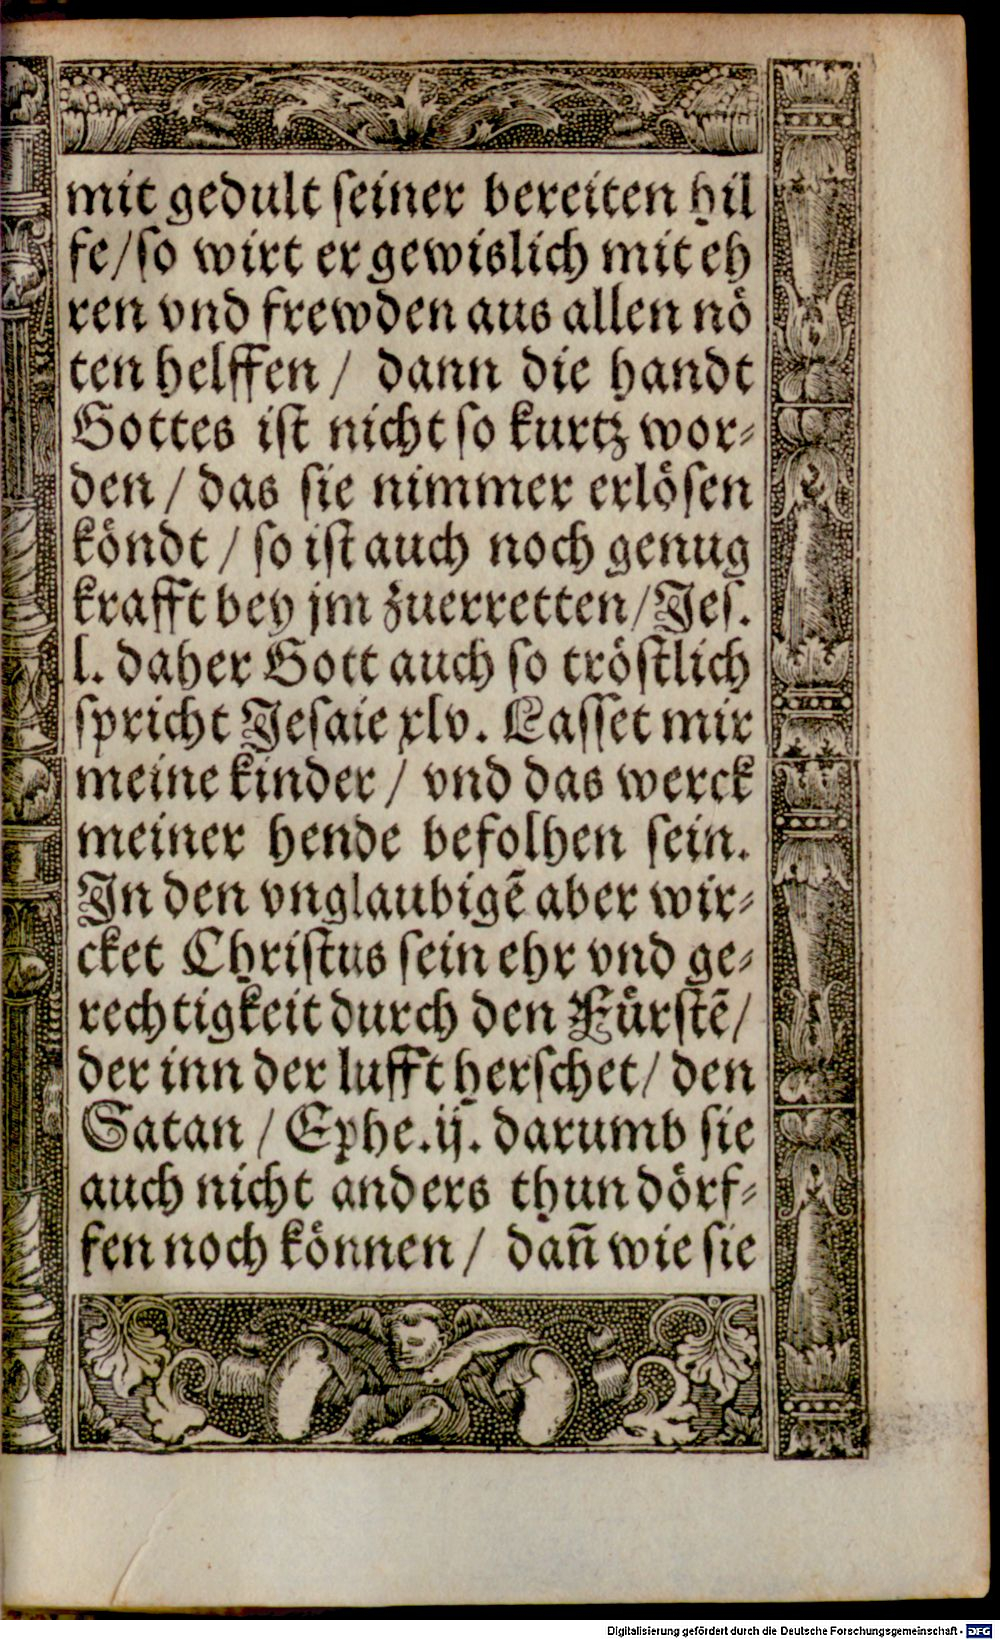 mit gedult seiner bereiten hil
fe/so wirt er gewislich mit eh
ren vnd frewden aus allen nö
ten helffen / dann die handt
Gottes ist nicht so kurtz wor⸗
den / das sie nimmer erlösen
köndt / so ist auch noch genug
krafft bey jm zuerretten/Jes.
l. daher Gott auch so tröstlich
spricht Jesaie xlv. Lasset mir
meine kinder / vnd das werck
meiner hende befolhen sein.
In den vnglaubigē aber wir⸗
cket Christus sein ehr vnd ge⸗
rechtigkeit durch den Fürstē/
der inn der lufft herschet/ den
Satan / Ephe.ij. darumb sie
auch nicht anders thun dörf⸗
fen noch können / dañ wie sie
Digitalisierung gefördert durch die Deutsche Forschungsgemeinschaft - DFG